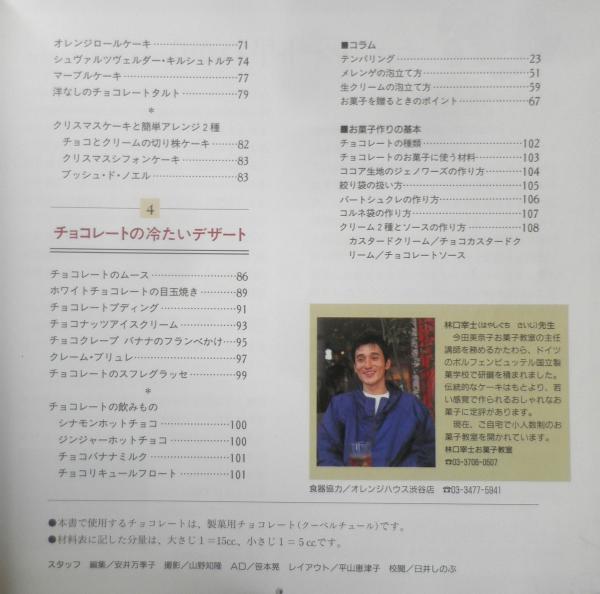 オレンジロールケーキ…………………………71
シュヴァルツヴェルダー・キルシュトルテ 74
マーブルケーキ…………………………77
洋なしのチョコレートタルト………………79
*
クリスマスケーキと簡単アレンジ2種
チョコとクリームの切り株ケーキ………82
クリスマスシフォンケーキ………………83
ブッシュ・ド・ノエル………………………83
4
チョコレートの冷たいデザート
チョコレートのムース………………………86
ホワイトチョコレートの目玉焼き…………89
チョコレートプディング……………………91
チョコナッツアイスクリーム………………93
チョコクレープ バナナのフランベかけ……95
クレーム・ブリュレ…………………………97
チョコレートのスフレグラッセ……………99
*
チョコレートの飲みもの
シナモンホットチョコ……………………100
ジンジャーホットチョコ…………………100
チョコバナナミルク………………………101
チョコリキュールフロート………………101
■コラム
テンパリング…………………………………23
メレンゲの泡立て方…………………………51
生クリームの泡立て方………………………59
お菓子を贈るときのポイント………………67
■お菓子作りの基本
チョコレートの種類………………………102
チョコレートのお菓子に使う材料………103
ココア生地のジェノワーズの作り方……104
絞り袋の扱い方……………………………105
パートシュクレの作り方…………………106
コルネ袋の作り方…………………………107
クリーム2種とソースの作り方…………108
カスタードクリーム／チョコカスタードク
リーム／チョコレートソース
林口宰士(はやしぐち さいじ)先生
今田美奈子お菓子教室の主任
講師を務めるかたわら、ドイツ
のボルフェンビュッテル国立製
菓学校で研鑽を積まれました。
伝統的なケーキはもとより、若
い感覚で作られるおしゃれなお
菓子に定評があります。
現在、ご自宅で小人数制のお
菓子教室を開かれています。
林口宰士お菓子教室
☎03-3706-0507
食器協力／オレンジハウス渋谷店 ☎03-3477-5941
●本書で使用するチョコレートは、製菓用チョコレート(クーベルチュール)です。
●材料表に記した分量は、大さじ1＝15cc、小さじ1＝5ccです。
スタッフ 編集／安井万季子 撮影／山野知隆 AD／笹本晃 レイアウト／平山恵津子 校閲／臼井しのぶ